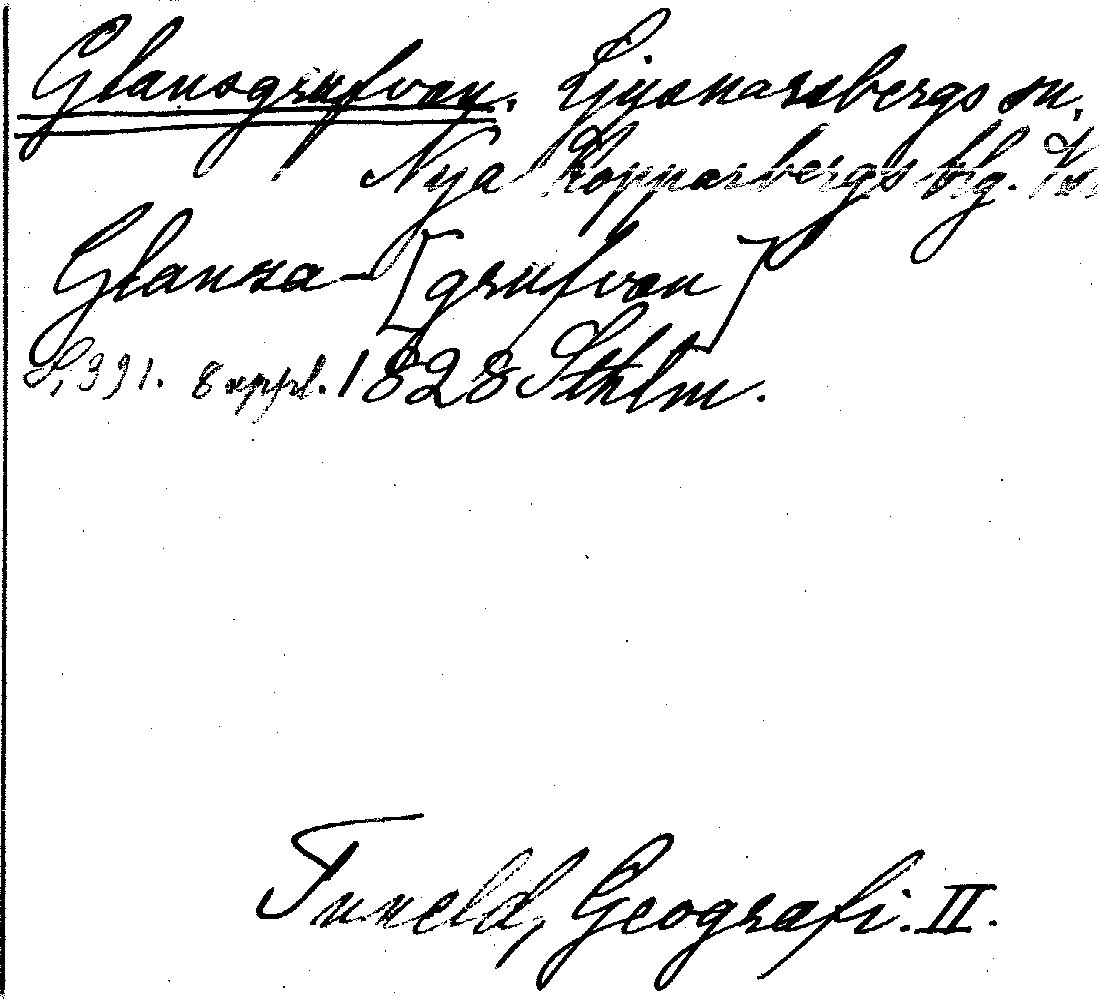 Glansgrufvan. Ljusnarsbergs sn,
Nya Kopparbergs blg.
Glansa-[grufvan]
S, 391. 8 uppl. 1828 Sthlm.
Tuneld, Geografi. II.